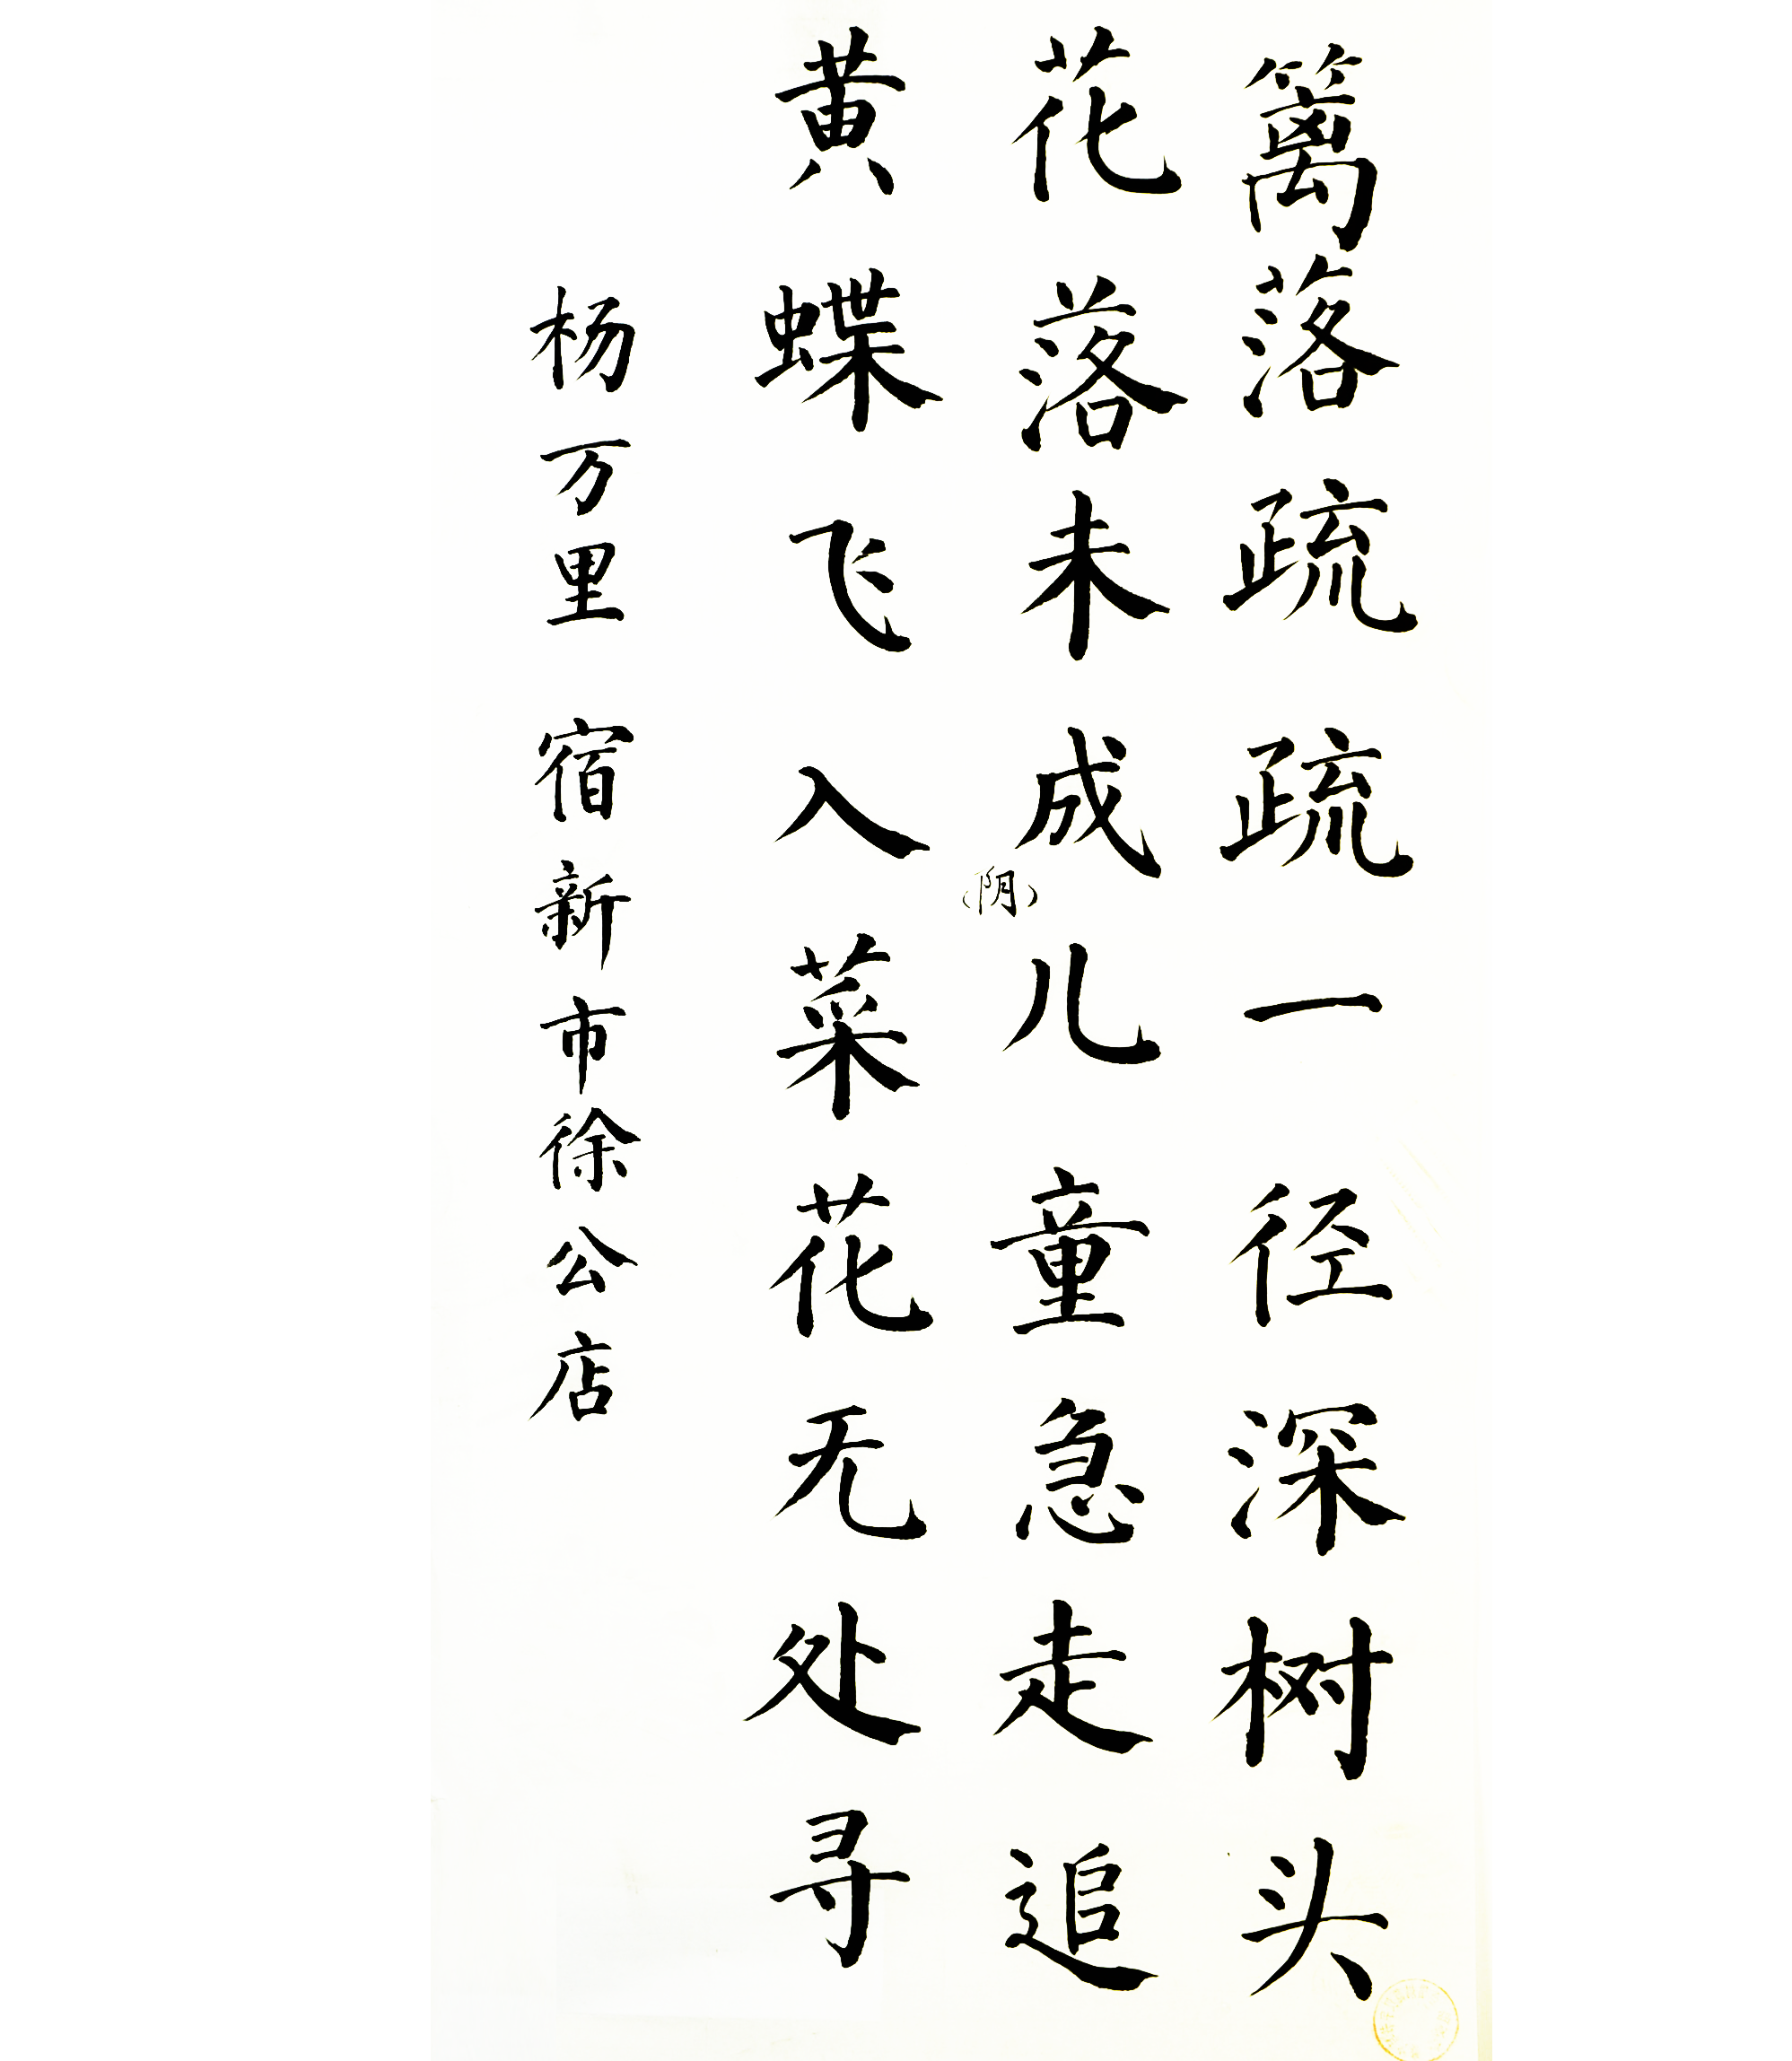 篱落疏疏一径深树头
花落未成(阴)儿童急走追
黄蝶飞入菜花无处寻
杨万里 宿新市徐公店